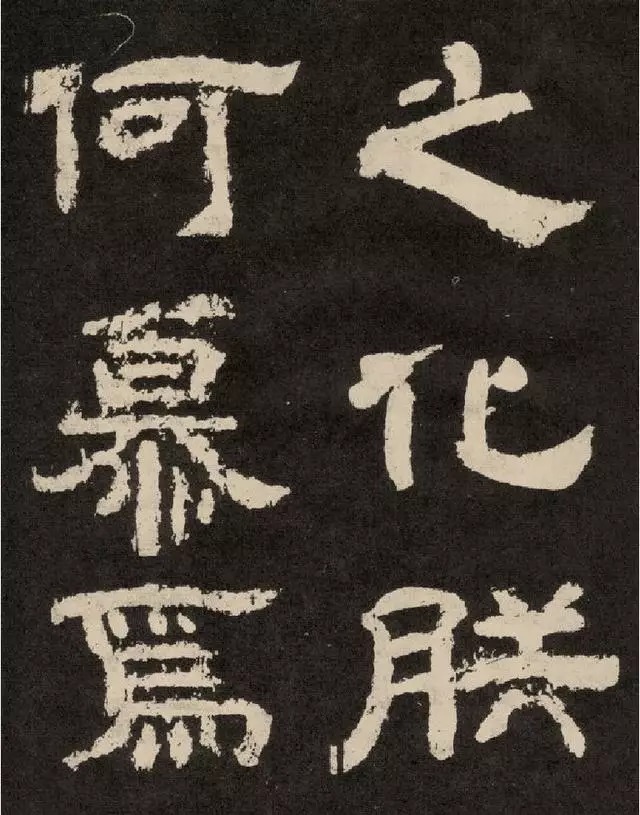 之化朕
何慕爲